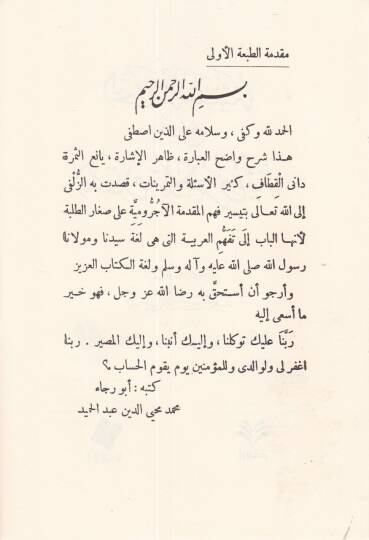 مقدمة الطبعة الأولى
بسم الله الرحمن الرحيم
الحمد لله وكفى ، وسلامه على الذين اصطفى
هذا شرح واضح العبارة ، ظاهر الإشارة ، يانع الثمرة
دانى القِطَافِ ، كثير الأسئلة والتمرينات ، قصدت به الزُّلْفَى
إلى الله تعالى بتيسير فهم المقدمة الآجُرُّومِيَّةِ على صغار الطلبة
لأنها الباب إلَى تَفَهُّمِ العربية التى هى لُغَةُ سيدنا ومولانا
رسول الله صلى الله عليه وآله وسلم ولغة الكتاب العزيز
وأرجو أن أستحقَّ به رضا الله عز وجل ، فهو خير
ما أسعى إليه
رَبَّنَا عليك توكلنا ، وإليك أنبنا ، وإليك المصير . ربنا
اغفر لى ولوالدى وللمؤمنين يوم يقوم الحساب ؟
كتبه : أبو رجاء
محمد محيي الدين عبد الحميد